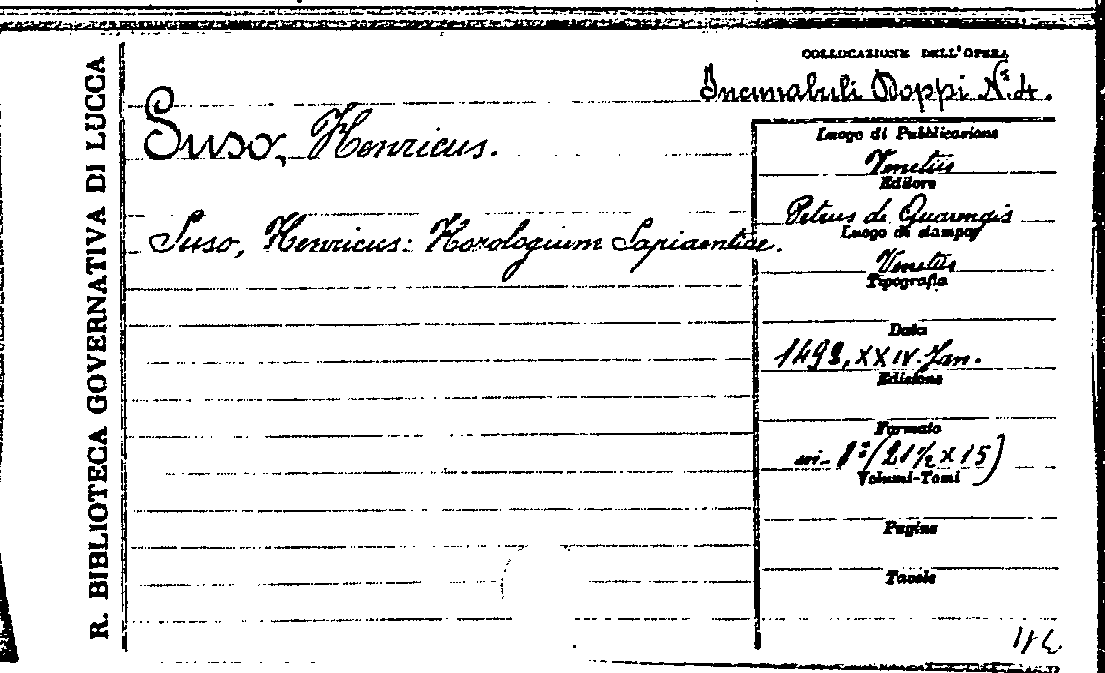 R. BIBLIOTECA GOVERNATIVA DI LUCCA
COLLOCAZIONE DELL'OPERA
Incunabuli Doppi N.º 4.
Suso, Henricus.
Suso, Henricus: Horologium Sapientiae.
Luogo di Pubblicazione
Venetiis
Editore
Petrus de Quarengis
Luogo di stampa
Venetiis
Tipografia
Data
1492, XXIV. Jan.
Edizione
Formato
in-8º (21½ x 15)
Volumi-Tomi
Pagine
Tavole